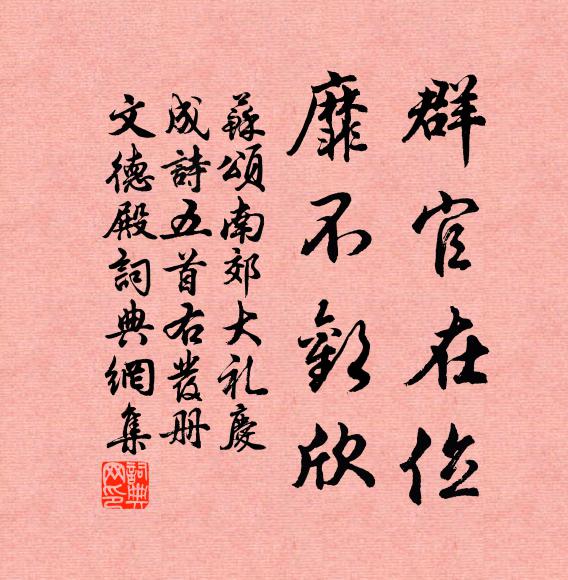 群官在位
靡不歡欣
蘇頌南郊大礼慶
成詩五首右發册
文德殿詞典網集
詞典网印